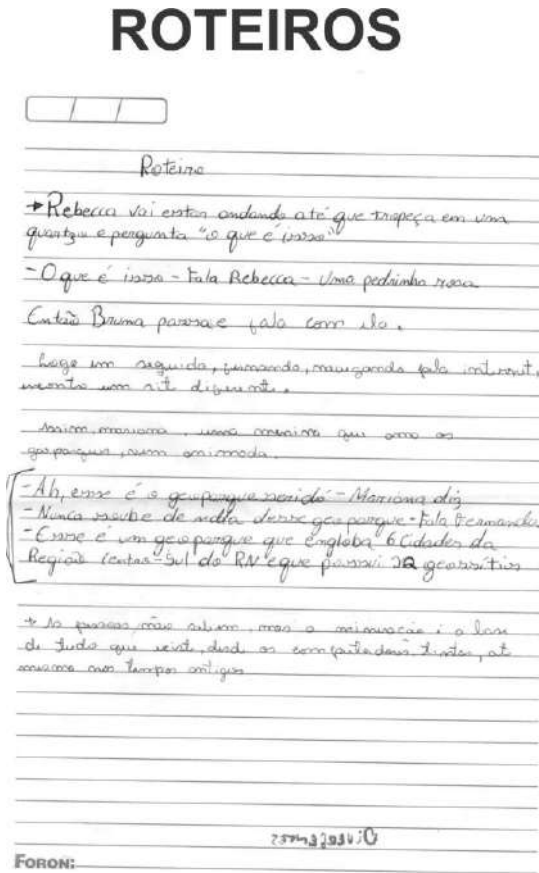 ROTEIROS
Roteiro
→ Rebecca vai estar andando até que tropeça em uma
quartzo e pergunta "o que é isso"
- O que é isso - Fala Rebecca - Uma pedrinha rosa
Então Bruna passa e fala com ela.
Logo em seguida, fernanda, navegando pela internet,
encontra um sit diferente.
Assim, mariana, uma menina que ama os
geoparques, vem animada.
- Ah, esse é o geoparque seridó - Mariana diz
- Nunca soube de nada desse geoparque - Fala Fernanda
- Esse é um geoparque que engloba 6 Cidades da
Região Centro-Sul do RN e que possui 22 geossítios
→ As pessoas não sabem, mas a mineração é a base
de tudo que existe, desde os computadores, tintas, até
mesmo nos tempos antigos
FORON: